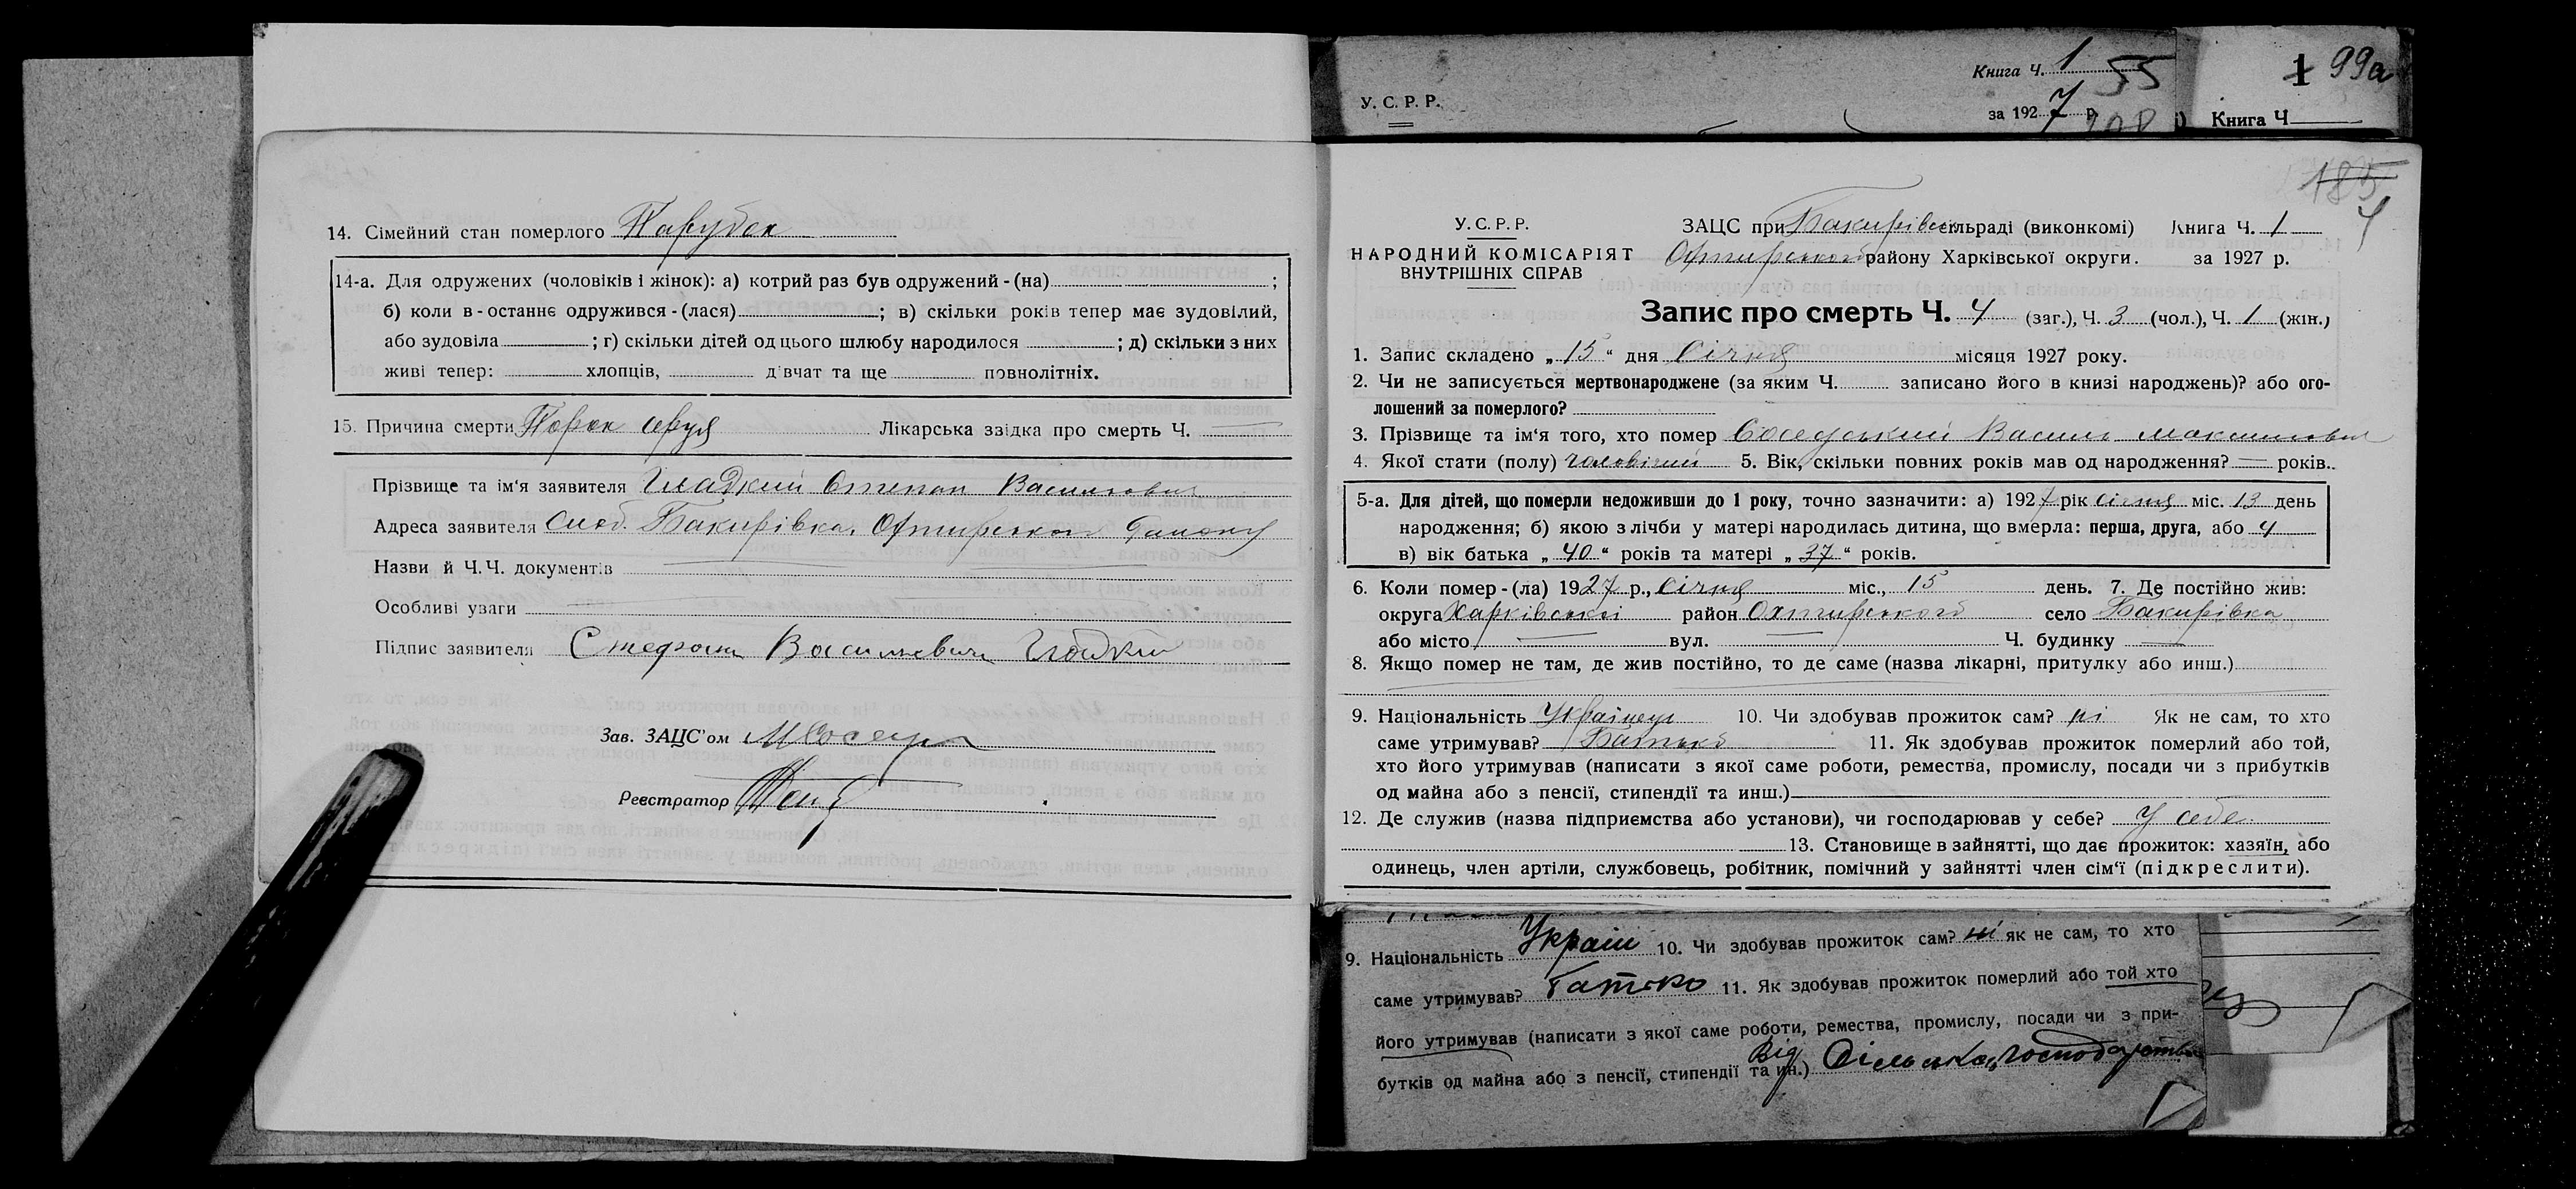 14. Сімейний стан померлого Парубок
14-а. Для одружених (чоловіків і жінок): а) котрий раз був одружений-(на) ;
б) коли в-останнє одружився-(лася) ; в) скільки років тепер має зудовілий,
або зудовіла ; г) скільки дітей од цього шлюбу народилося ; д) скільки з них
живі тепер: хлопців, дівчат та ще повнолітніх.
15. Причина смерти Порок Лікарська звідка про смерть Ч.
Прізвище та ім'я заявителя Гладкий Степан Васильович
Адреса заявителя Слоб. Бакирівка, Охтирськог
Назви й Ч.Ч. документів
Особливі уваги
Підпис заявителя Стефан Васильевич Гладкий
Зав. ЗАЦС'ом
Реєстратор
У. С. Р. Р.
Книга Ч. 1 55
за 1927 р.
1 99а
Книга Ч
185
4
У. С. Р. Р.
НАРОДНИЙ КОМІСАРІЯТ
ВНУТРІШНІХ СПРАВ
ЗАЦС при Бакирівск сільраді (виконкомі) Книга Ч. 1
Охтирського району Харківської округи. за 1927 р.
Запис про смерть Ч. 4 (заг.), Ч. 3 (чол.), Ч. 1 (жін.)
1. Запис складено „15“ дня Січня місяця 1927 року.
2. Чи не записується мертвонароджене (за яким Ч. записано його в книзі народжень)? або ого-
лошений за померлого?
3. Прізвище та ім'я того, хто помер Василь Максимович
4. Якої стати (полу) чоловічий 5. Вік, скільки повних років мав од народження? — років.
5-а. Для дітей, що померли недоживши до 1 року, точно зазначити: а) 1927 рік січня міс. 13 день
народження; б) якою з лічби у матері народилась дитина, що вмерла: перша, друга, або 4
в) вік батька „40“ років та матері „37“ років.
6. Коли помер-(ла) 1927 р., січня міс., 15 день. 7. Де постійно жив:
округа Харківської район Охтирського село Бакирівка
або місто — вул. — Ч. будинку —
8. Якщо помер не там, де жив постійно, то де саме (назва лікарні, притулку або инш.)
9. Національність Українець 10. Чи здобував прожиток сам? ні Як не сам, то хто
саме утримував? Батько 11. Як здобував прожиток померлий або той,
хто його утримував (написати з якої саме роботи, ремества, промислу, посади чи з прибутків
од майна або з пенсії, стипендії та инш.)
12. Де служив (назва підприємства або установи), чи господарював у себе? У себе
13. Становище в зайнятті, що дає прожиток: хазяїн, або
одинець, член артіли, службовець, робітник, помічний у зайнятті член сім'ї (підкреслити).
9. Національність Україн 10. Чи здобував прожиток сам? ні як не сам, то хто
саме утримував? Батько 11. Як здобував прожиток померлий або той хто
його утримував (написати з якої саме роботи, ремества, промислу, посади чи з при-
бутків од майна або з пенсії, стипендії та ин.) Від Сільська господарства